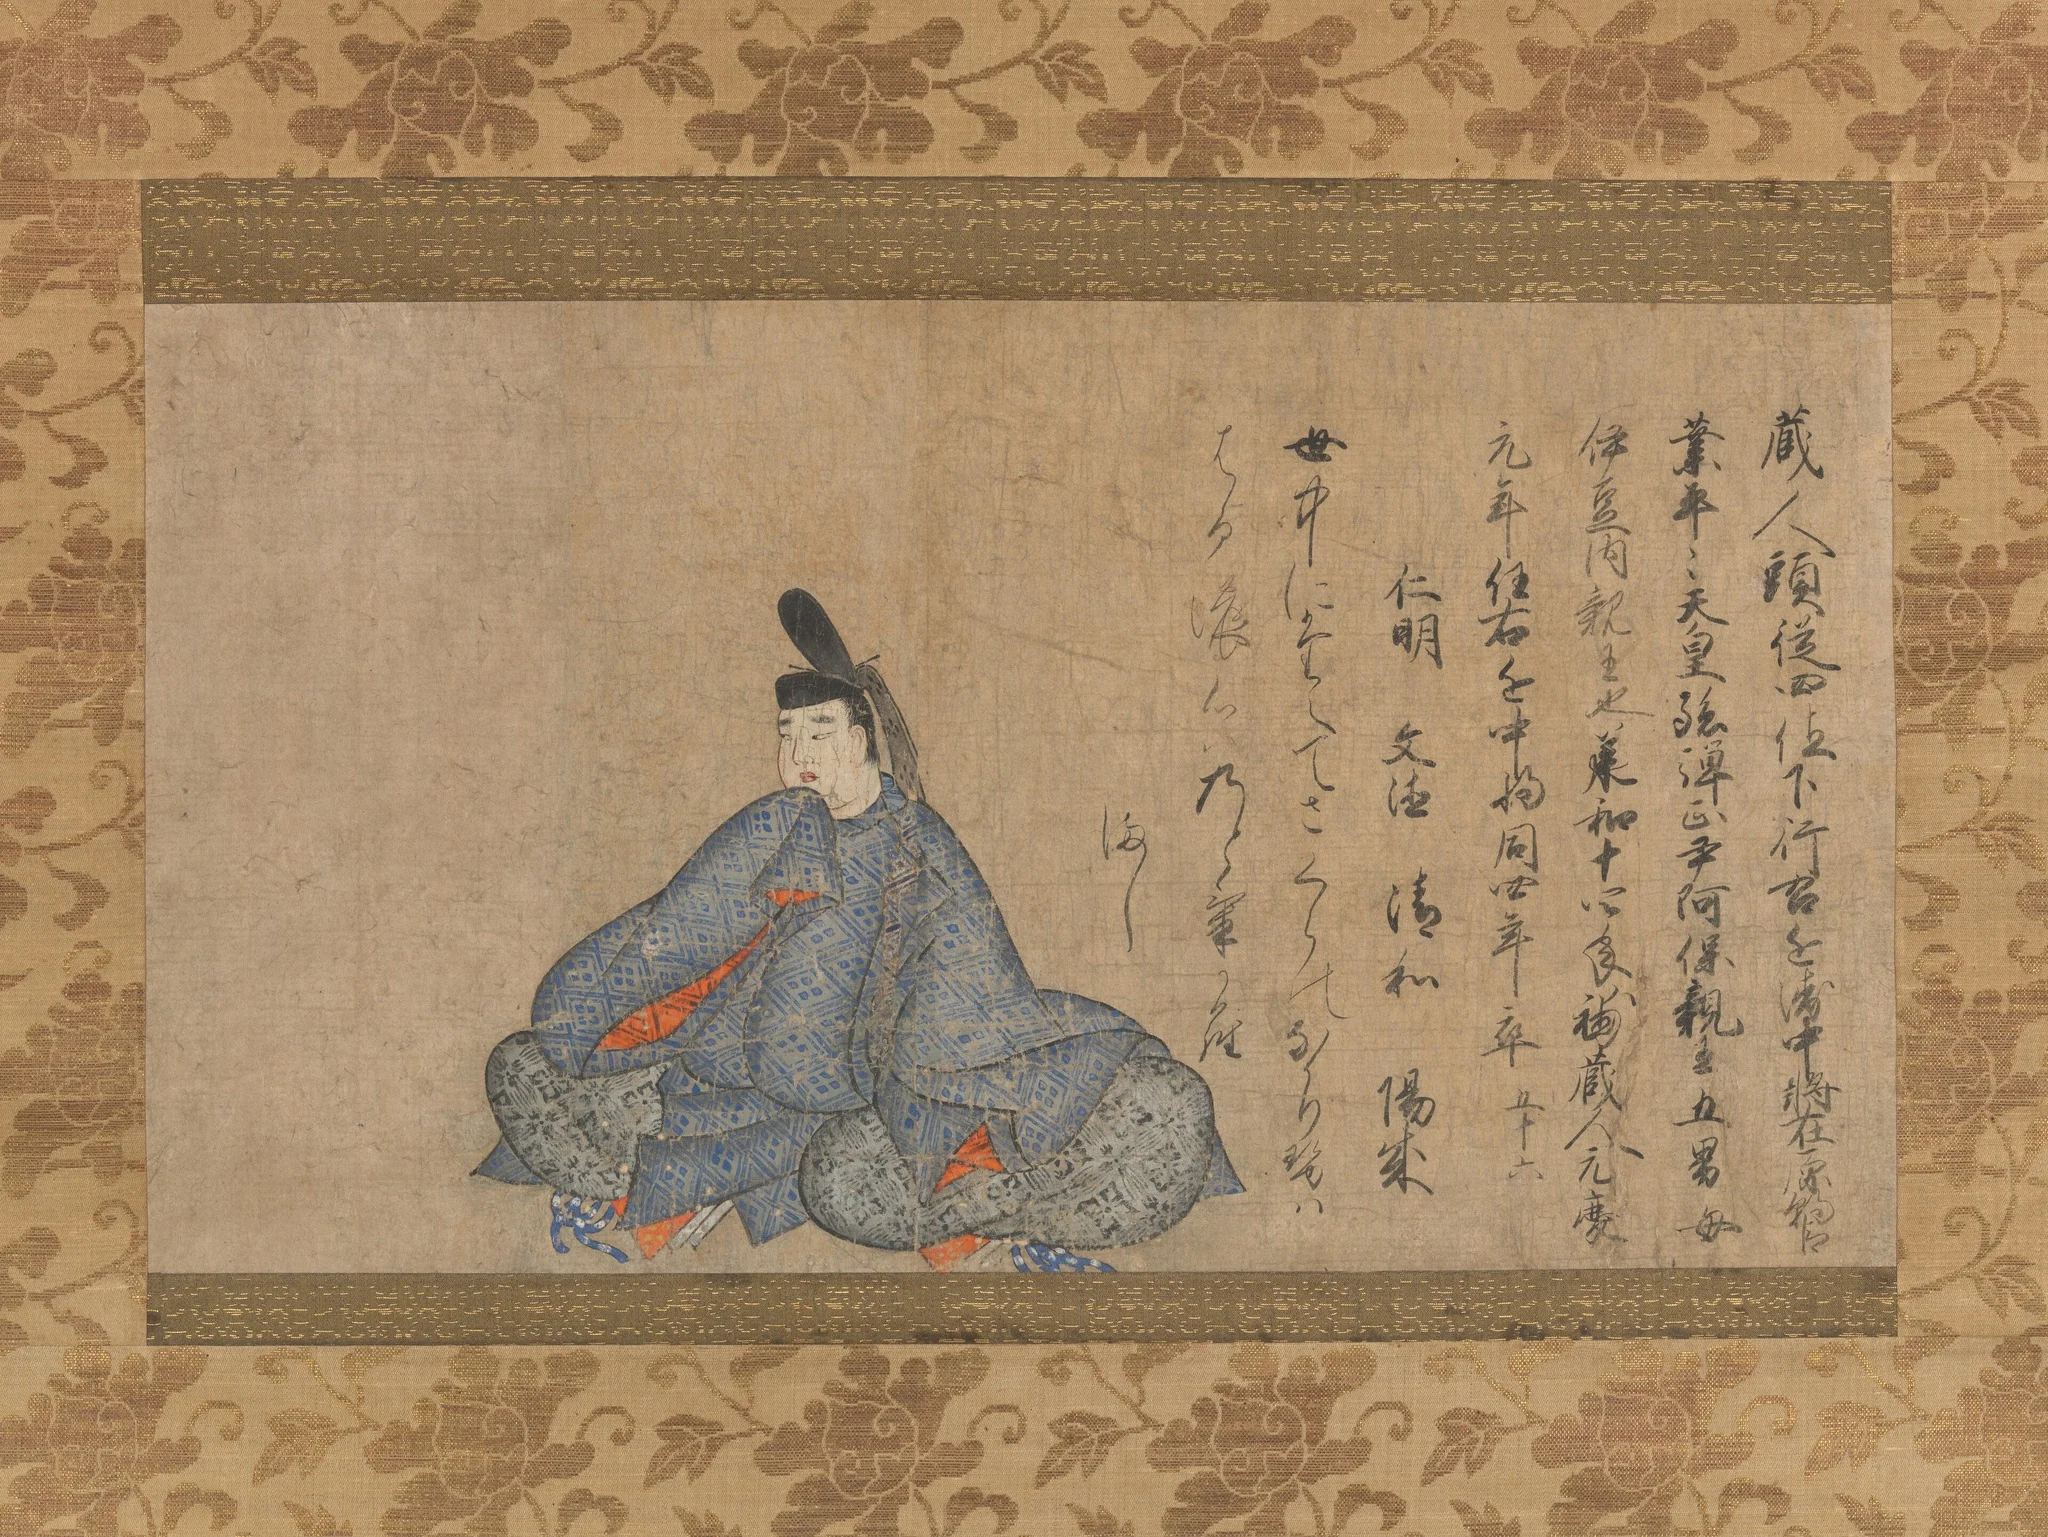 蔵人頭従四位下行右近衛中将在原朝臣
業平々天皇孫弾正尹阿保親王五男母
伊豆内親王也 和十四年補蔵人元慶
元年任右近中将同四年卒五十六
仁明 文徳 清和 陽成
世中にたえてさくらのなかり勢は
はるの心はのとけから
まし